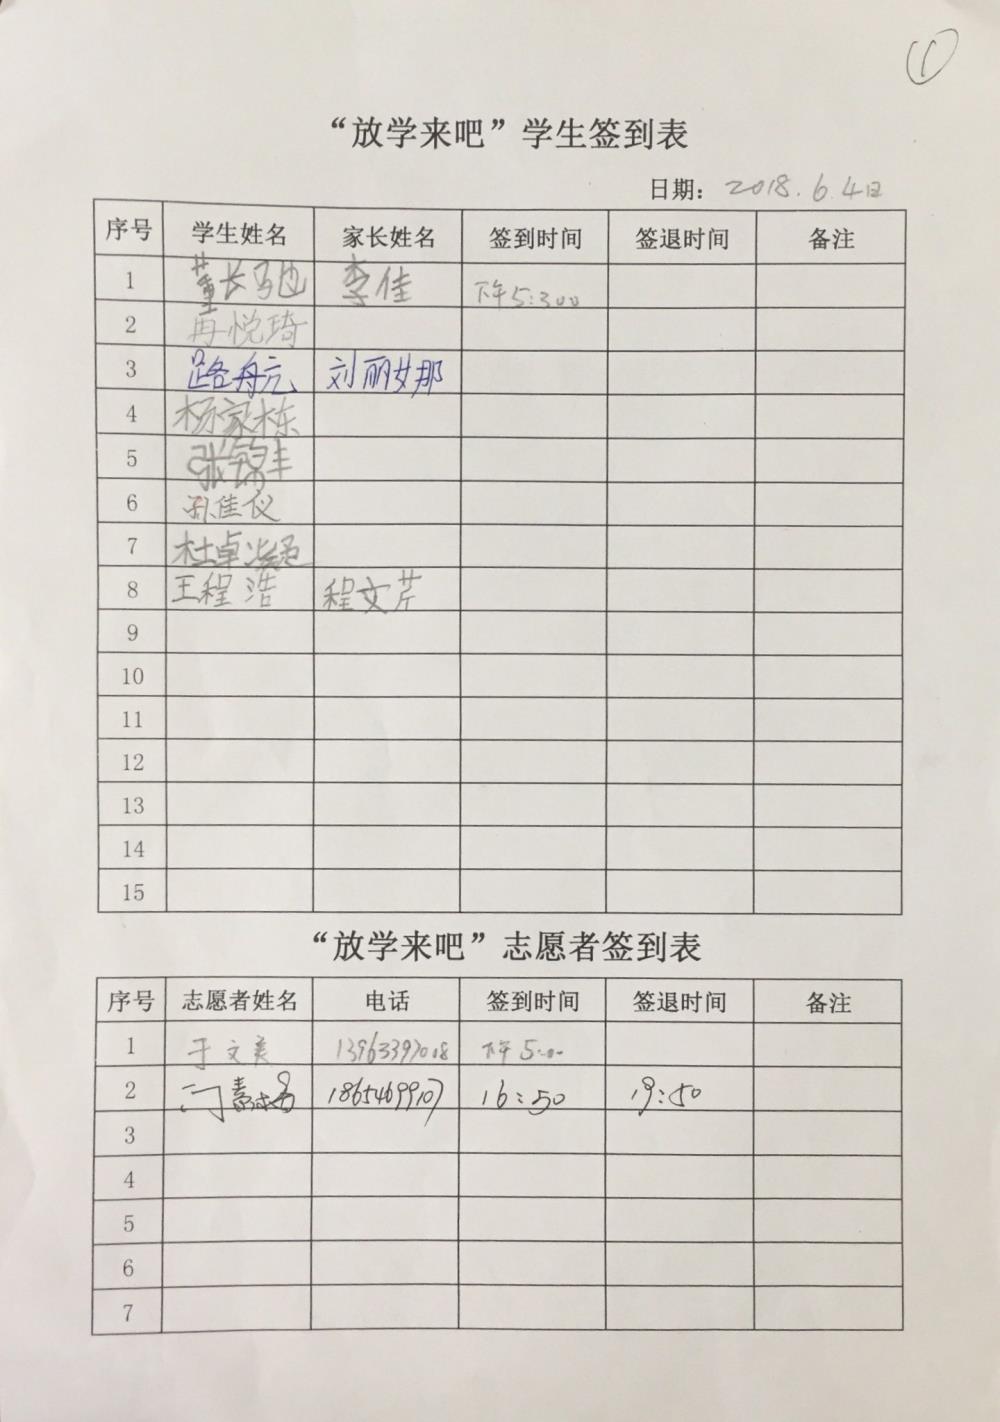 ①
“放学来吧”学生签到表
日期: 2018.6.4日
序号 学生姓名 家长姓名 签到时间 签退时间 备注
1 董长驰 李佳 下午5:300
2 冉悦琦
3 路航 刘丽娜
4 杨家栋
5 张锦丰
6 孙佳仪
7 杜卓
8 王程浩 程文芹
9
10
11
12
13
14
15
“放学来吧”志愿者签到表
序号 志愿者姓名 电话 签到时间 签退时间 备注
1 于文美 13963397018 下午5:00
2 18654699107 16:50 19:50
3
4
5
6
7